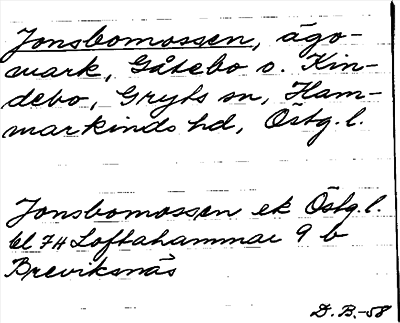 Jonsbomossen, ägo-
mark, Gåtebo o. Kin-
debo, Gryts sn, Ham-
markinds hd, Östg. l.
Jonsbomossen ek Östg. l.
bl 74 Loftahammar 9 b
Breviksnäs
D. B. -58